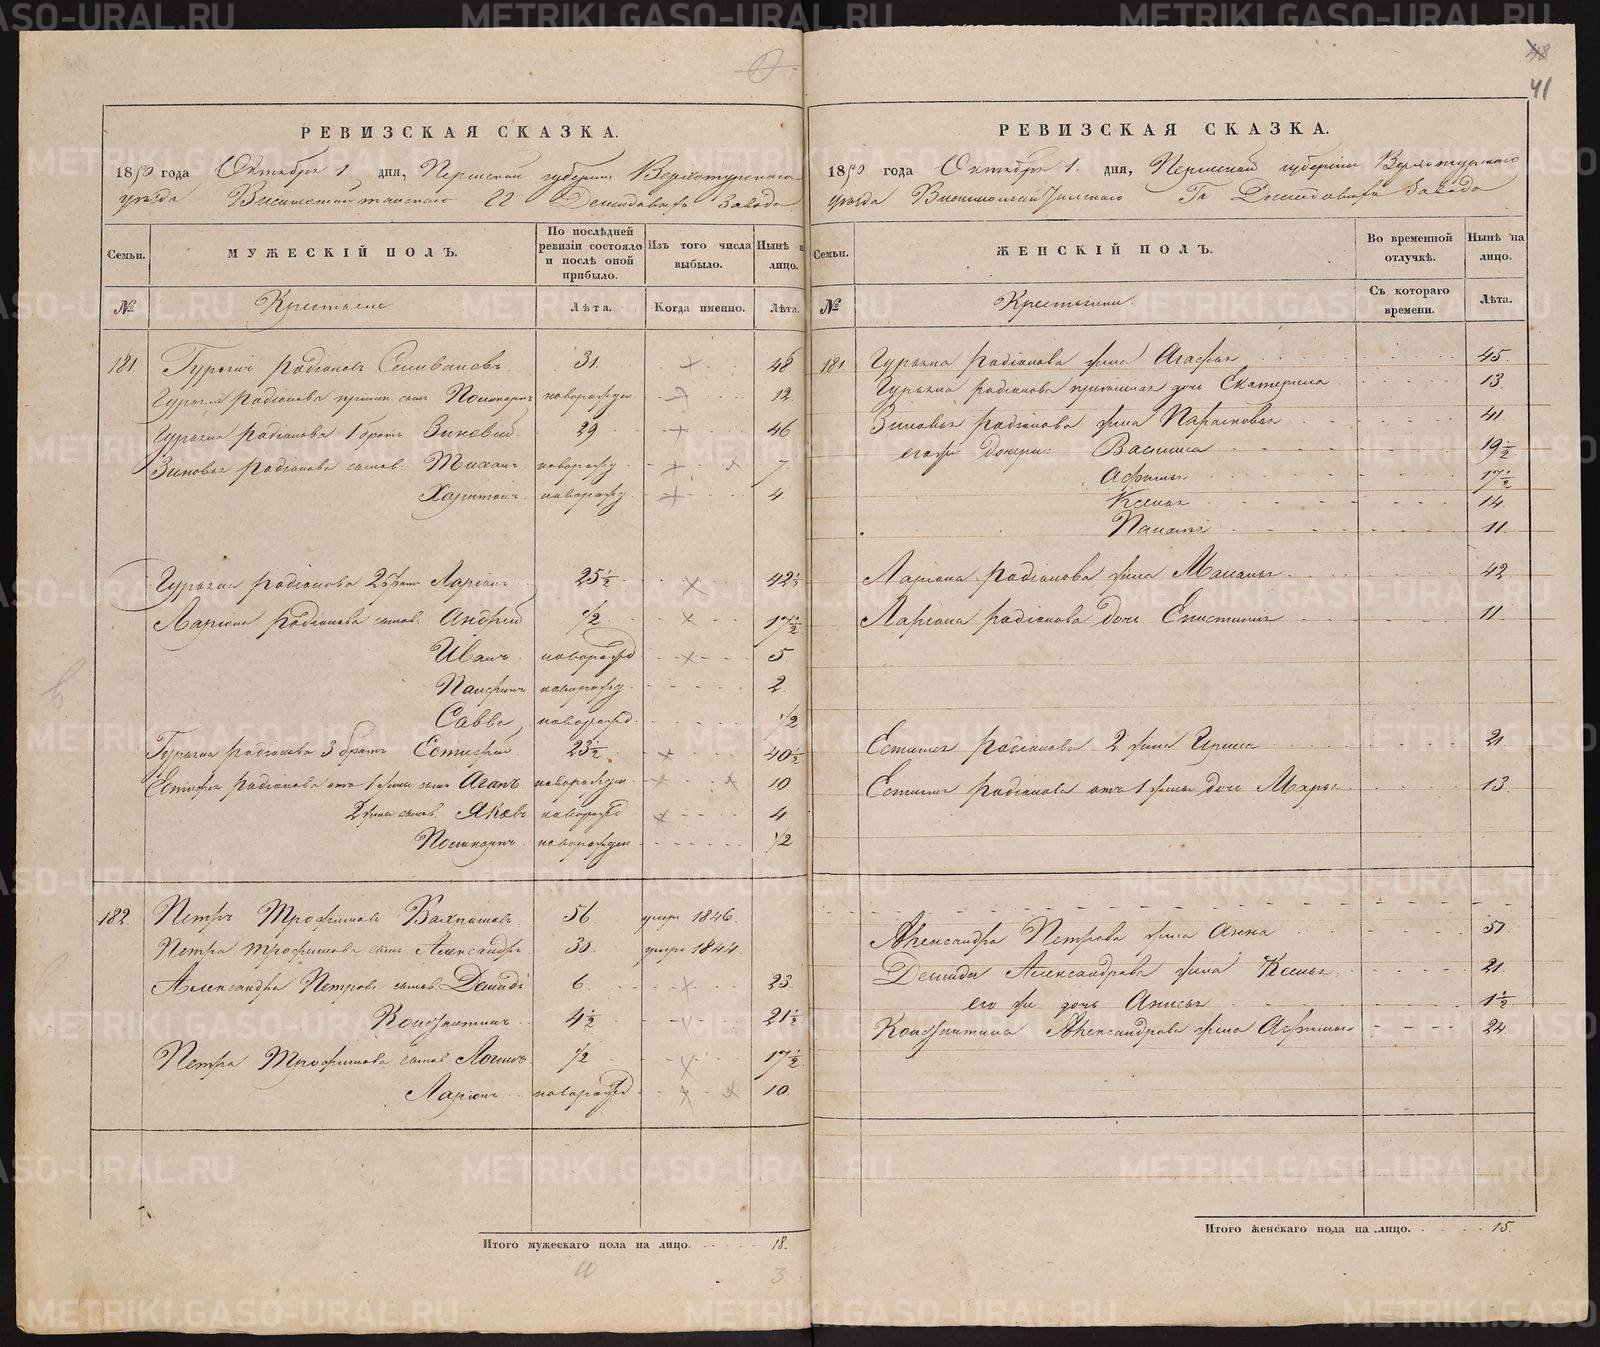 48
41
РЕВИЗСКАЯ СКАЗКА.
1850 года Октября 1 дня, Пермской губернии Верхотурского
уезда Висимошайтанского Гг Демидовыхъ Завода
Семьи. МУЖЕСКІЙ ПОЛЪ. По послѣдней ревизіи состояло и послѣ оной прибыло. Изъ того числа выбыло. Нынѣ на лицо.
№ Крестьяне Лѣта. Когда именно. Лѣта.
181. Гурьянъ Родіоновъ Селивановъ 31. 48
Гурьяна Родіонова сынъ Поликарпъ новорожден 12
Гурьяна Родіонова 1 братъ Зиновій 29 46
Зиновья Родіонова сынов. Тихонъ новорожд. 7
Харитонъ новорожд. 4
Гурьяна Родіонова 2 братъ Ларіонъ 25½ 42½
Ларіона Родіонова сынов. Андрей ½ 17½
Иванъ новорожд 5
новорожд. 2
Савва новорожд. ½
Гурьяна Родіонова 3 братъ Естифей 23½ 40½
Естифея Родіонова отъ 1 жены сынъ Агапъ новорожден 10
2 жены сынов. Яковъ новорожд 4
Поликарпъ новорожден ½
182. Петръ Трофимовъ 56 умре 1846
Петра Трофимова сынъ Александръ 30. умре 1844
Александра Петрова сынов. Демидъ 6 23
Констянтинъ 4½ 21½
Петра Трофимова сынов. Логинъ ½ 17½
Ларіонъ новорожд 10
Итого мужескаго пола на лицо. 18.
10
3
РЕВИЗСКАЯ СКАЗКА.
1850 года Октября 1. дня, Пермской губерніи Верхотурского
уезда Висимошайтанского Гг Демидовыхъ Завода
Семьи. ЖЕНСКІЙ ПОЛЪ. Во временной отлучкѣ. Нынѣ на лицо.
№ Крестьянки. Съ котораго времени. Лѣта.
181. Гурьяна Родіонова жена Агафья 45
Гурьяна Родіонова дочь Екатерина 13
Зиновья Родіонова жена Парасковья 41
его же дочери: Василиса 19½
Афимья 17½
Ксенья 14
11
Ларіона Родіонова жена Маланья 42
Ларіона Родіонова дочь Епистимія 11
Естифея Родіонова 2 жена Ирина 21
Естифея Родіонова отъ 1 жены дочь Марья 13
Александра Петрова жена Анна 51
Демида Александрова жена Ксенья 21
его же дочь Анисья 1½
Констянтина Александрова жена Афимья 24
Итого женскаго пола на лицо. 15.
METRIKI.GASO-URAL.RU